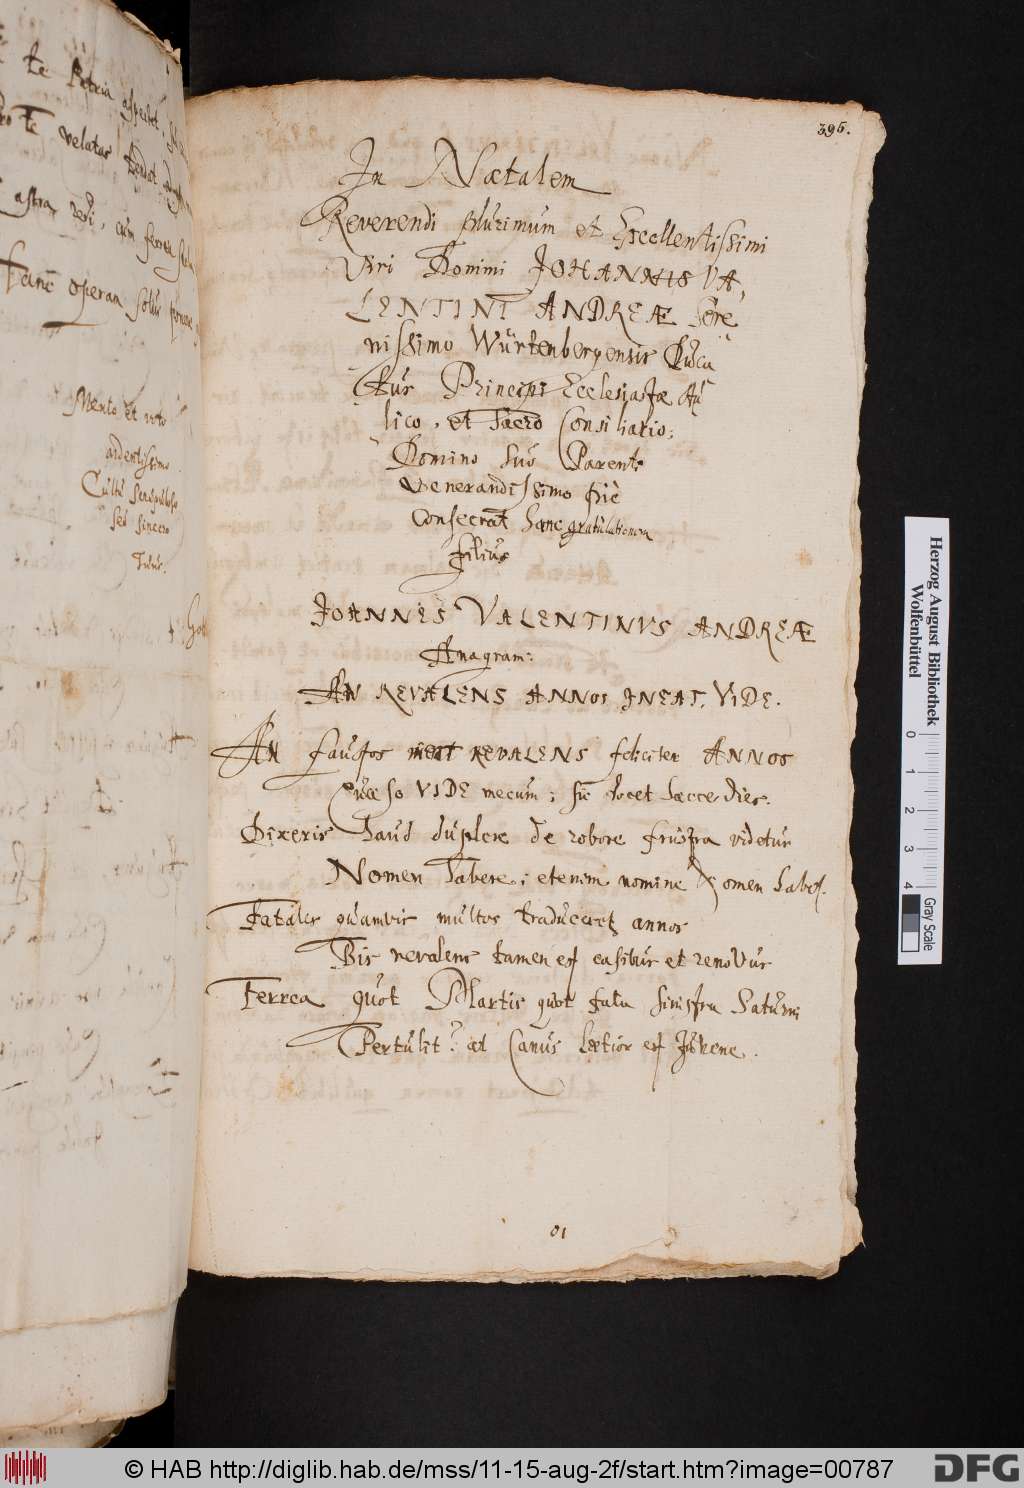 te Patria
velatas
astra, cum ferrea
hanc operam solus
Mento et voto
ardentissimo
Cultu
sed sincero
Tuus.
396.
In Nætalem
Reverendi plurimum et Excellentissimi
Viri Domini JOHANNIS VA,
LENTINI ANDREÆ Sere
nissimo Würtenbergensis Duca
tus Principi Ecclesiastæ Au
lico, et Sacro Consiliario;
Domino suo Parenti
Venerandissimo piè
Consecrat hanc gratulationem
filius
JOANNES VALENTINVS ANDREÆ
Anagram:
AN REVALENS ANNOS INEAT, VIDE.
AN faustos ineat REVALENS feliciter ANNOS
Quæso VIDE mecum; sic docet hæcce dies.
Dixeris haud duplex de robore frustra videtur
Nomen habere; etenim nomine & omen habet.
Fatales quamvis multos traduceret annos
Bis revalens tamen est casibus et renovus
Ferrea quot Martis quot fata sinistra Saturni
Pertulit? at Canus lætior est Juvene.
01
Herzog August Bibliothek
Wolfenbüttel
0 1 2 3 4
Gray Scale
© HAB http://diglib.hab.de/mss/11-15-aug-2f/start.htm?image=00787
DFG